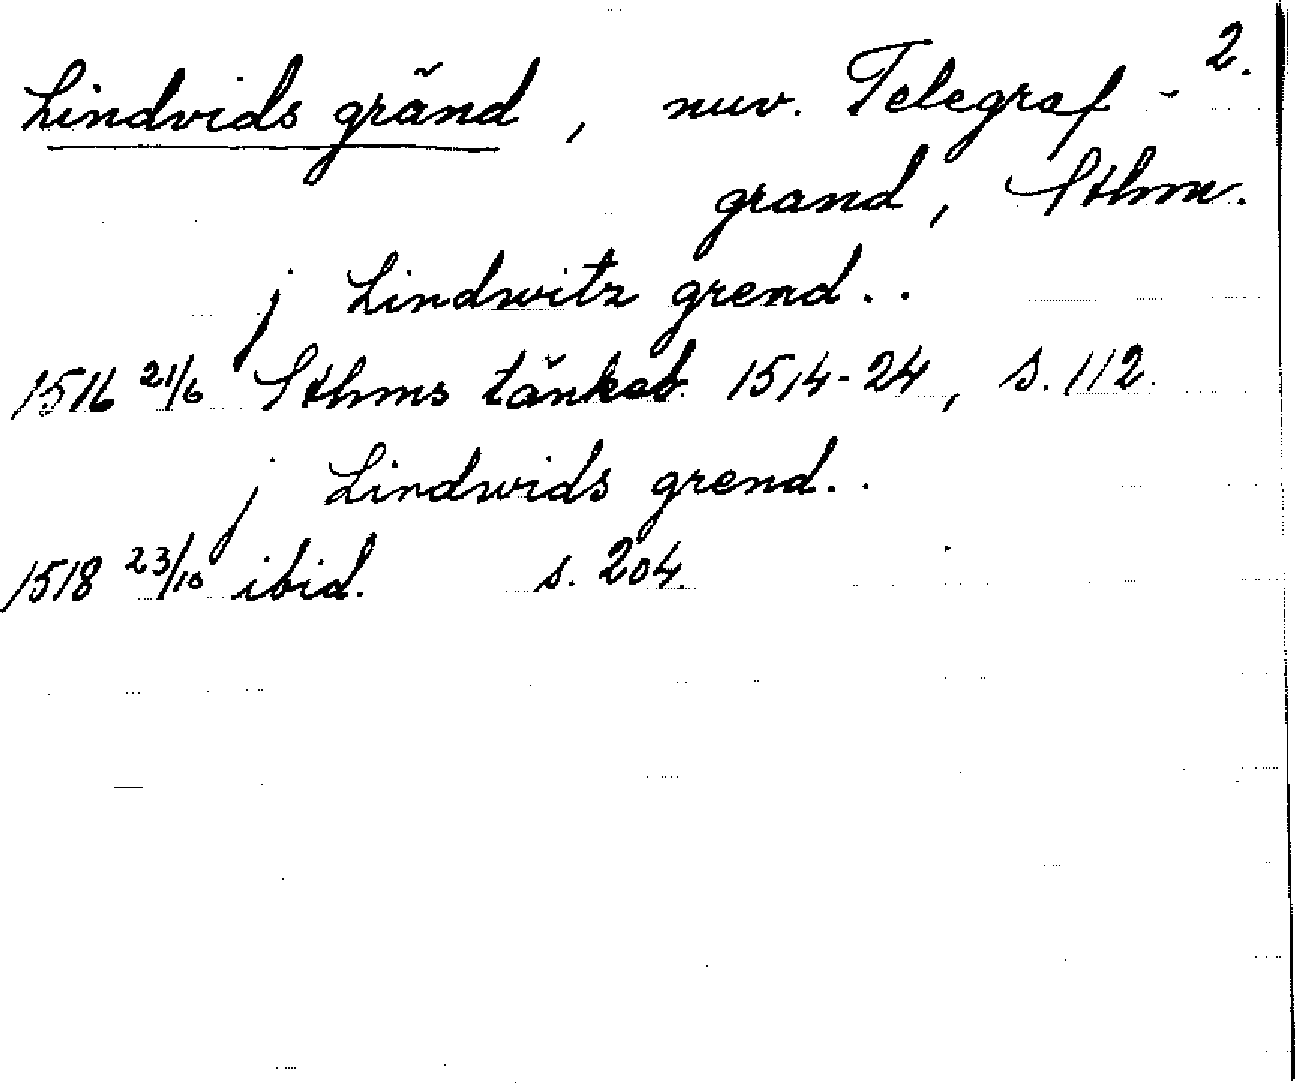 2.
Lindvids gränd, nuv. Telegraf-
grand, Sthm.
j Lindwitz grend..
1516 21/6 Sthms tänkeb. 1514-24, s. 112.
j Lindwids grend..
1518 23/10 ibid. s. 204.